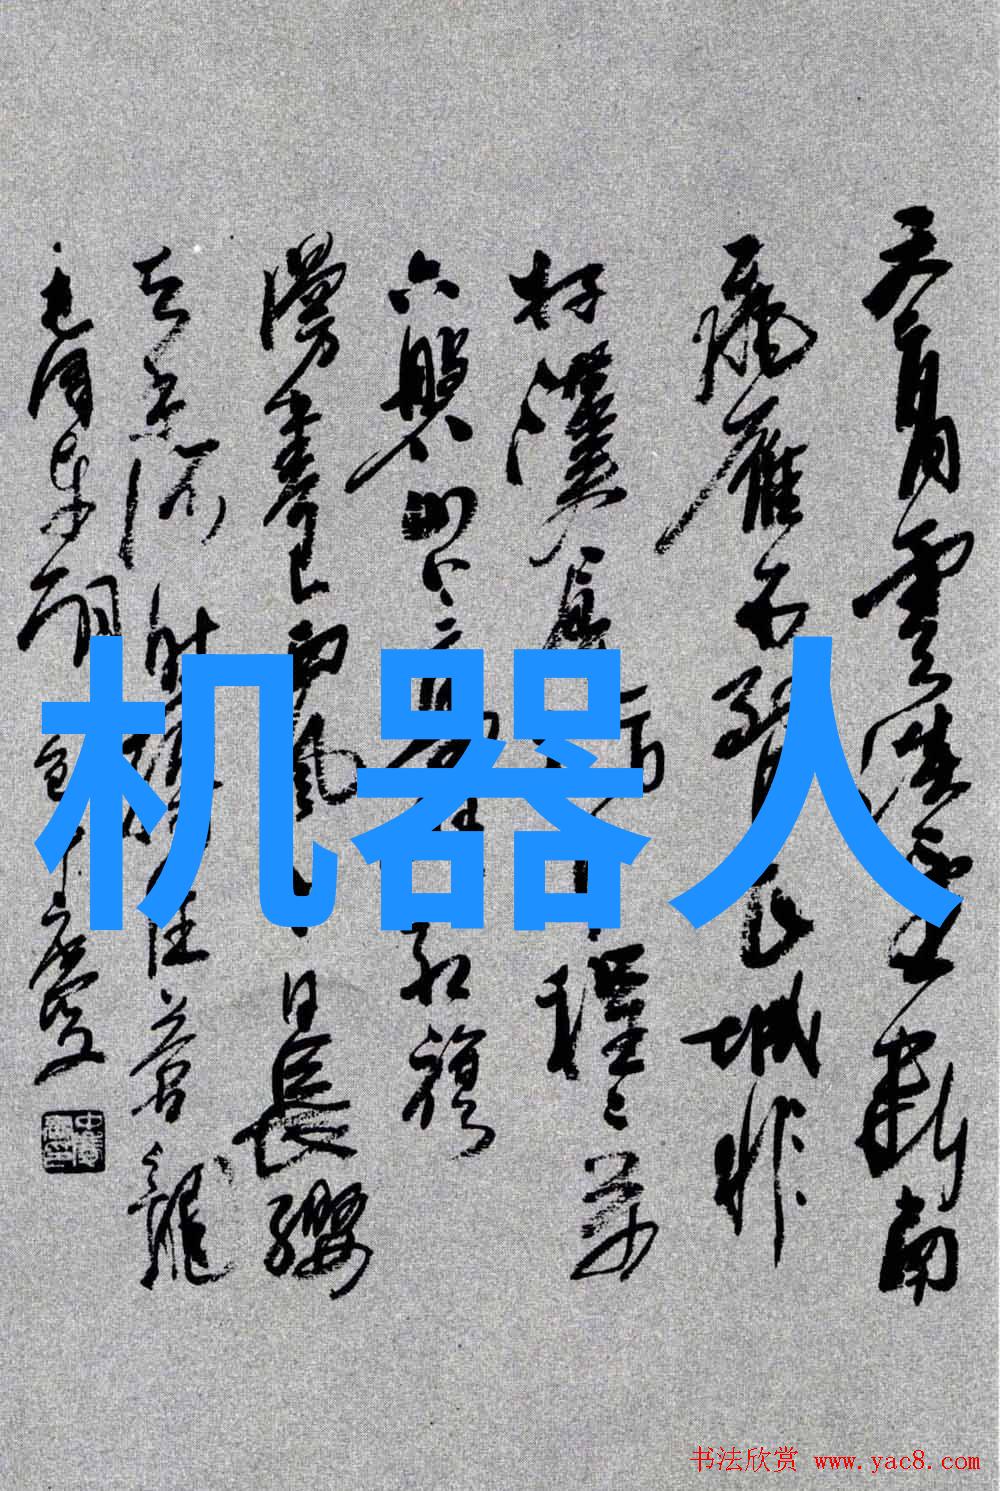 天高雲淡望断南
飛雁不到長城非
好漢屈指行程二万
六盤山上高峰红旗
漫卷西風今日長纓
在手何時縛住蒼龍
毛泽东词
机器人
书法欣赏 www.yac8.com